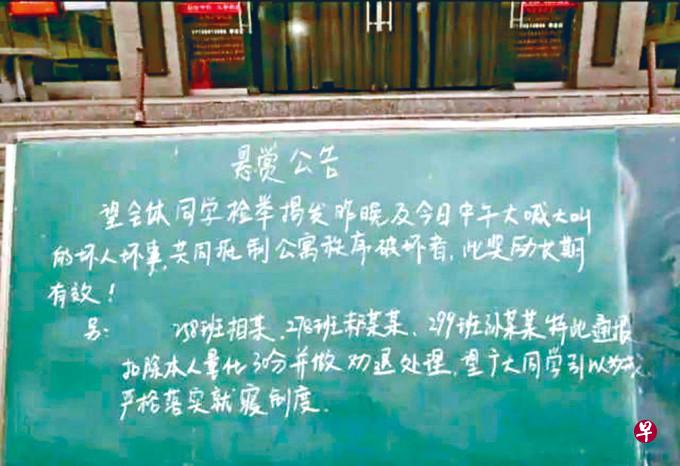 悬赏公告
望全体同学检举揭发昨晚及今日中午大喊大叫
的坏人坏事,共同抵制公寓秩序破坏者,此奖励长期
有效!
另: 258班相某、278班郝某某、299班孙某某特此通报
扣除本人量化30分并做劝退处理,望广大同学引以为戒,
严格落实就寝制度.
早